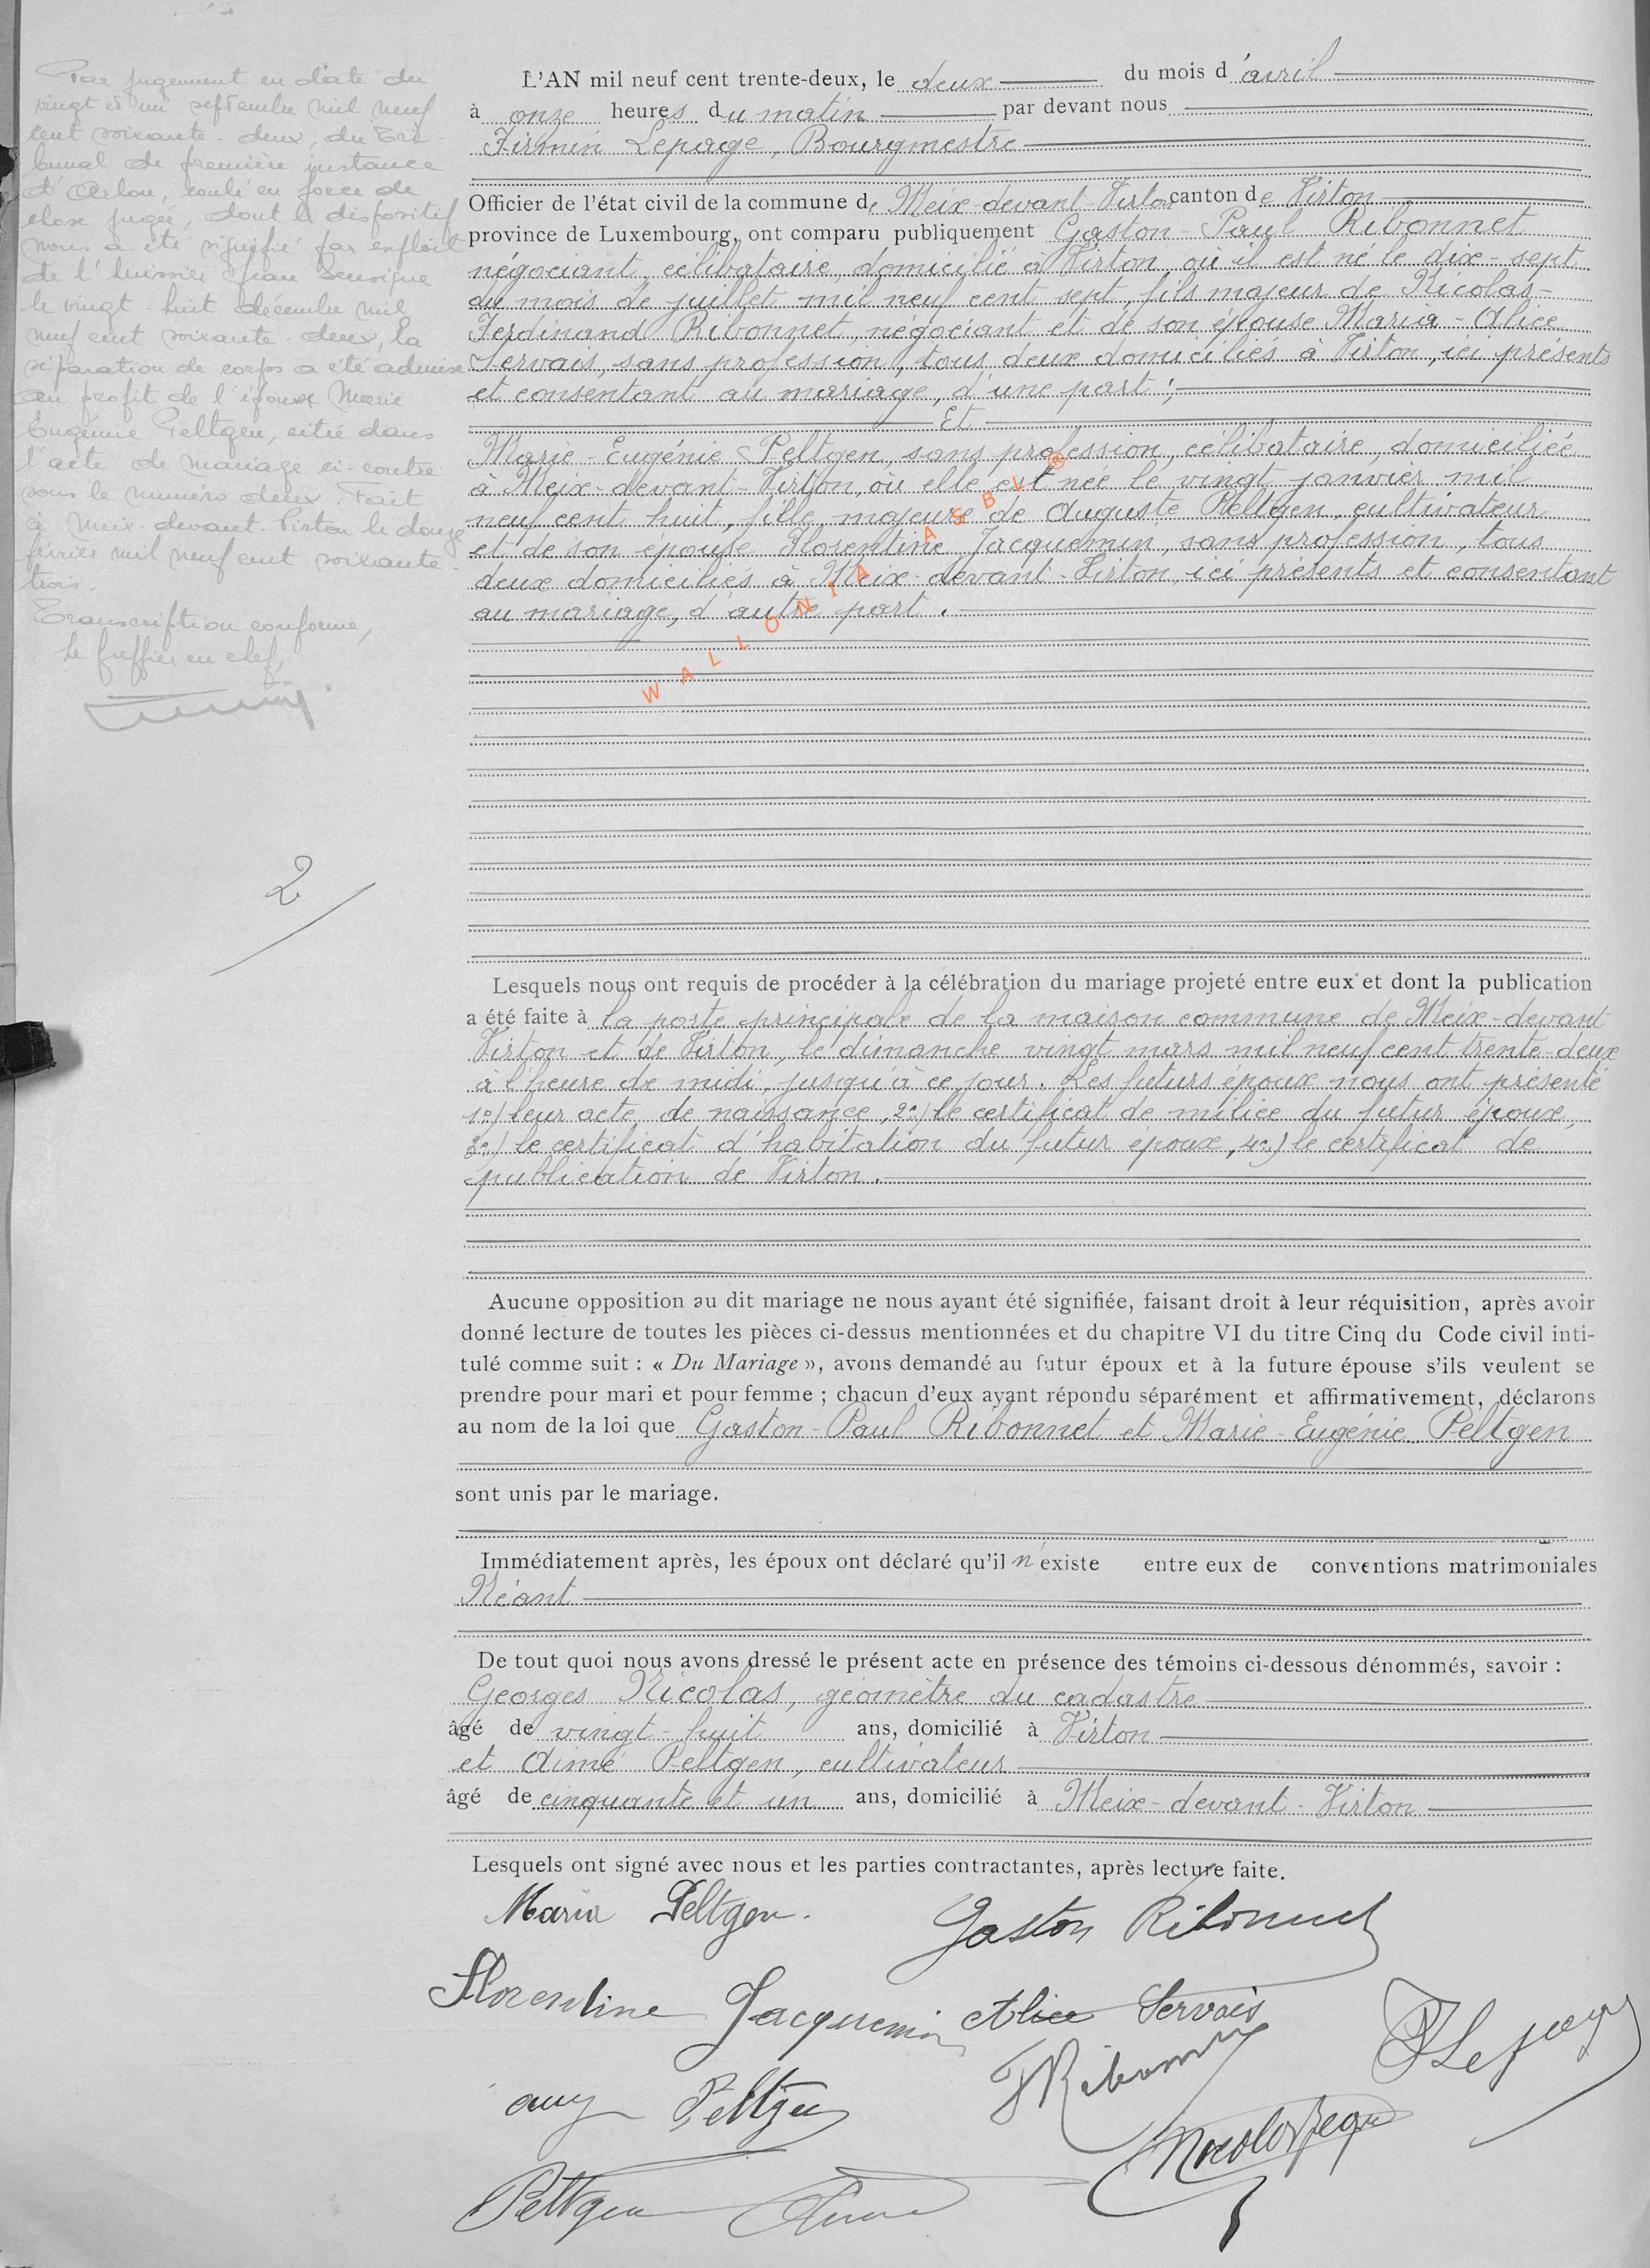 Par jugement en date du
vingt et un septembre mil neuf
cent soixante-deux, du Tri-
bunal de première instance
d'Arlon, coulé en force de
chose jugée, dont le dispositif
nous a été signifié par exploit
de l'huissier Jean
le vingt-huit décembre mil
neuf cent soixante-deux, la
séparation de corps a été admise
au profit de l'épouse Marie
Eugénie Peltgen, citée dans
l'acte de mariage ci-contre
sous le numéro deux. Fait
à Meix-devant-Virton le douze
février mil neuf cent soixante-
trois.
Transcription conforme,
Le greffier en chef,
2
L'AN mil neuf cent trente-deux, le deux du mois d'avril
à onze heures du matin par devant nous
Firmin Lepage, Bourgmestre
Officier de l'état civil de la commune de Meix-devant-Virton canton de Virton
province de Luxembourg, ont comparu publiquement Gaston-Paul Ribonnet
négociant, célibataire, domicilié à Virton, où il est né le dix-sept
du mois de juillet mil neuf cent sept, fils majeur de Nicolas-
Ferdinand Ribonnet, négociant et de son épouse Maria-Alice
Servais, sans profession, tous deux domiciliés à Virton, ici présents
et consentant au mariage, d'une part;
Et
Marie-Eugénie Peltgen, sans profession, célibataire, domiciliée
à Meix-devant-Virton, où elle est née le vingt janvier mil
neuf cent huit, fille majeure de Auguste Peltgen, cultivateur
et de son épouse Florentine Jacquemin, sans profession, tous
deux domiciliés à Meix-devant-Virton, ici présents et consentant
au mariage, d'autre part.
WALLONIA ASBL ®
Lesquels nous ont requis de procéder à la célébration du mariage projeté entre eux et dont la publication
a été faite à la porte principale de la maison commune de Meix-devant
Virton et de Virton, le dimanche vingt mars mil neuf cent trente-deux
à l'heure de midi, jusqu'à ce jour. Les futurs époux nous ont présenté
1°/ leur acte de naissance, 2°/ le certificat de milice du futur époux,
3°/ le certificat d'habitation du futur époux, 4°/ le certificat de
publication de Virton.
Aucune opposition au dit mariage ne nous ayant été signifiée, faisant droit à leur réquisition, après avoir
donné lecture de toutes les pièces ci-dessus mentionnées et du chapitre VI du titre Cinq du Code civil inti-
tulé comme suit : « Du Mariage », avons demandé au futur époux et à la future épouse s'ils veulent se
prendre pour mari et pour femme ; chacun d'eux ayant répondu séparément et affirmativement, déclarons
au nom de la loi que Gaston-Paul Ribonnet et Marie-Eugénie Peltgen
sont unis par le mariage.
Immédiatement après, les époux ont déclaré qu'il n'existe entre eux de conventions matrimoniales
Néant
De tout quoi nous avons dressé le présent acte en présence des témoins ci-dessous dénommés, savoir :
Georges Nicolas, géomètre du cadastre
âgé de vingt-huit ans, domicilié à Virton
et Aimé Peltgen, cultivateur
âgé de cinquante et un ans, domicilié à Meix-devant-Virton
Lesquels ont signé avec nous et les parties contractantes, après lecture faite.
Maria Peltgen. Gaston Ribonnet
Florentine Jacquemin Alice Servais
FRibonnet FLepage
Aug Peltgen
Nicolas
Peltgen Aimé